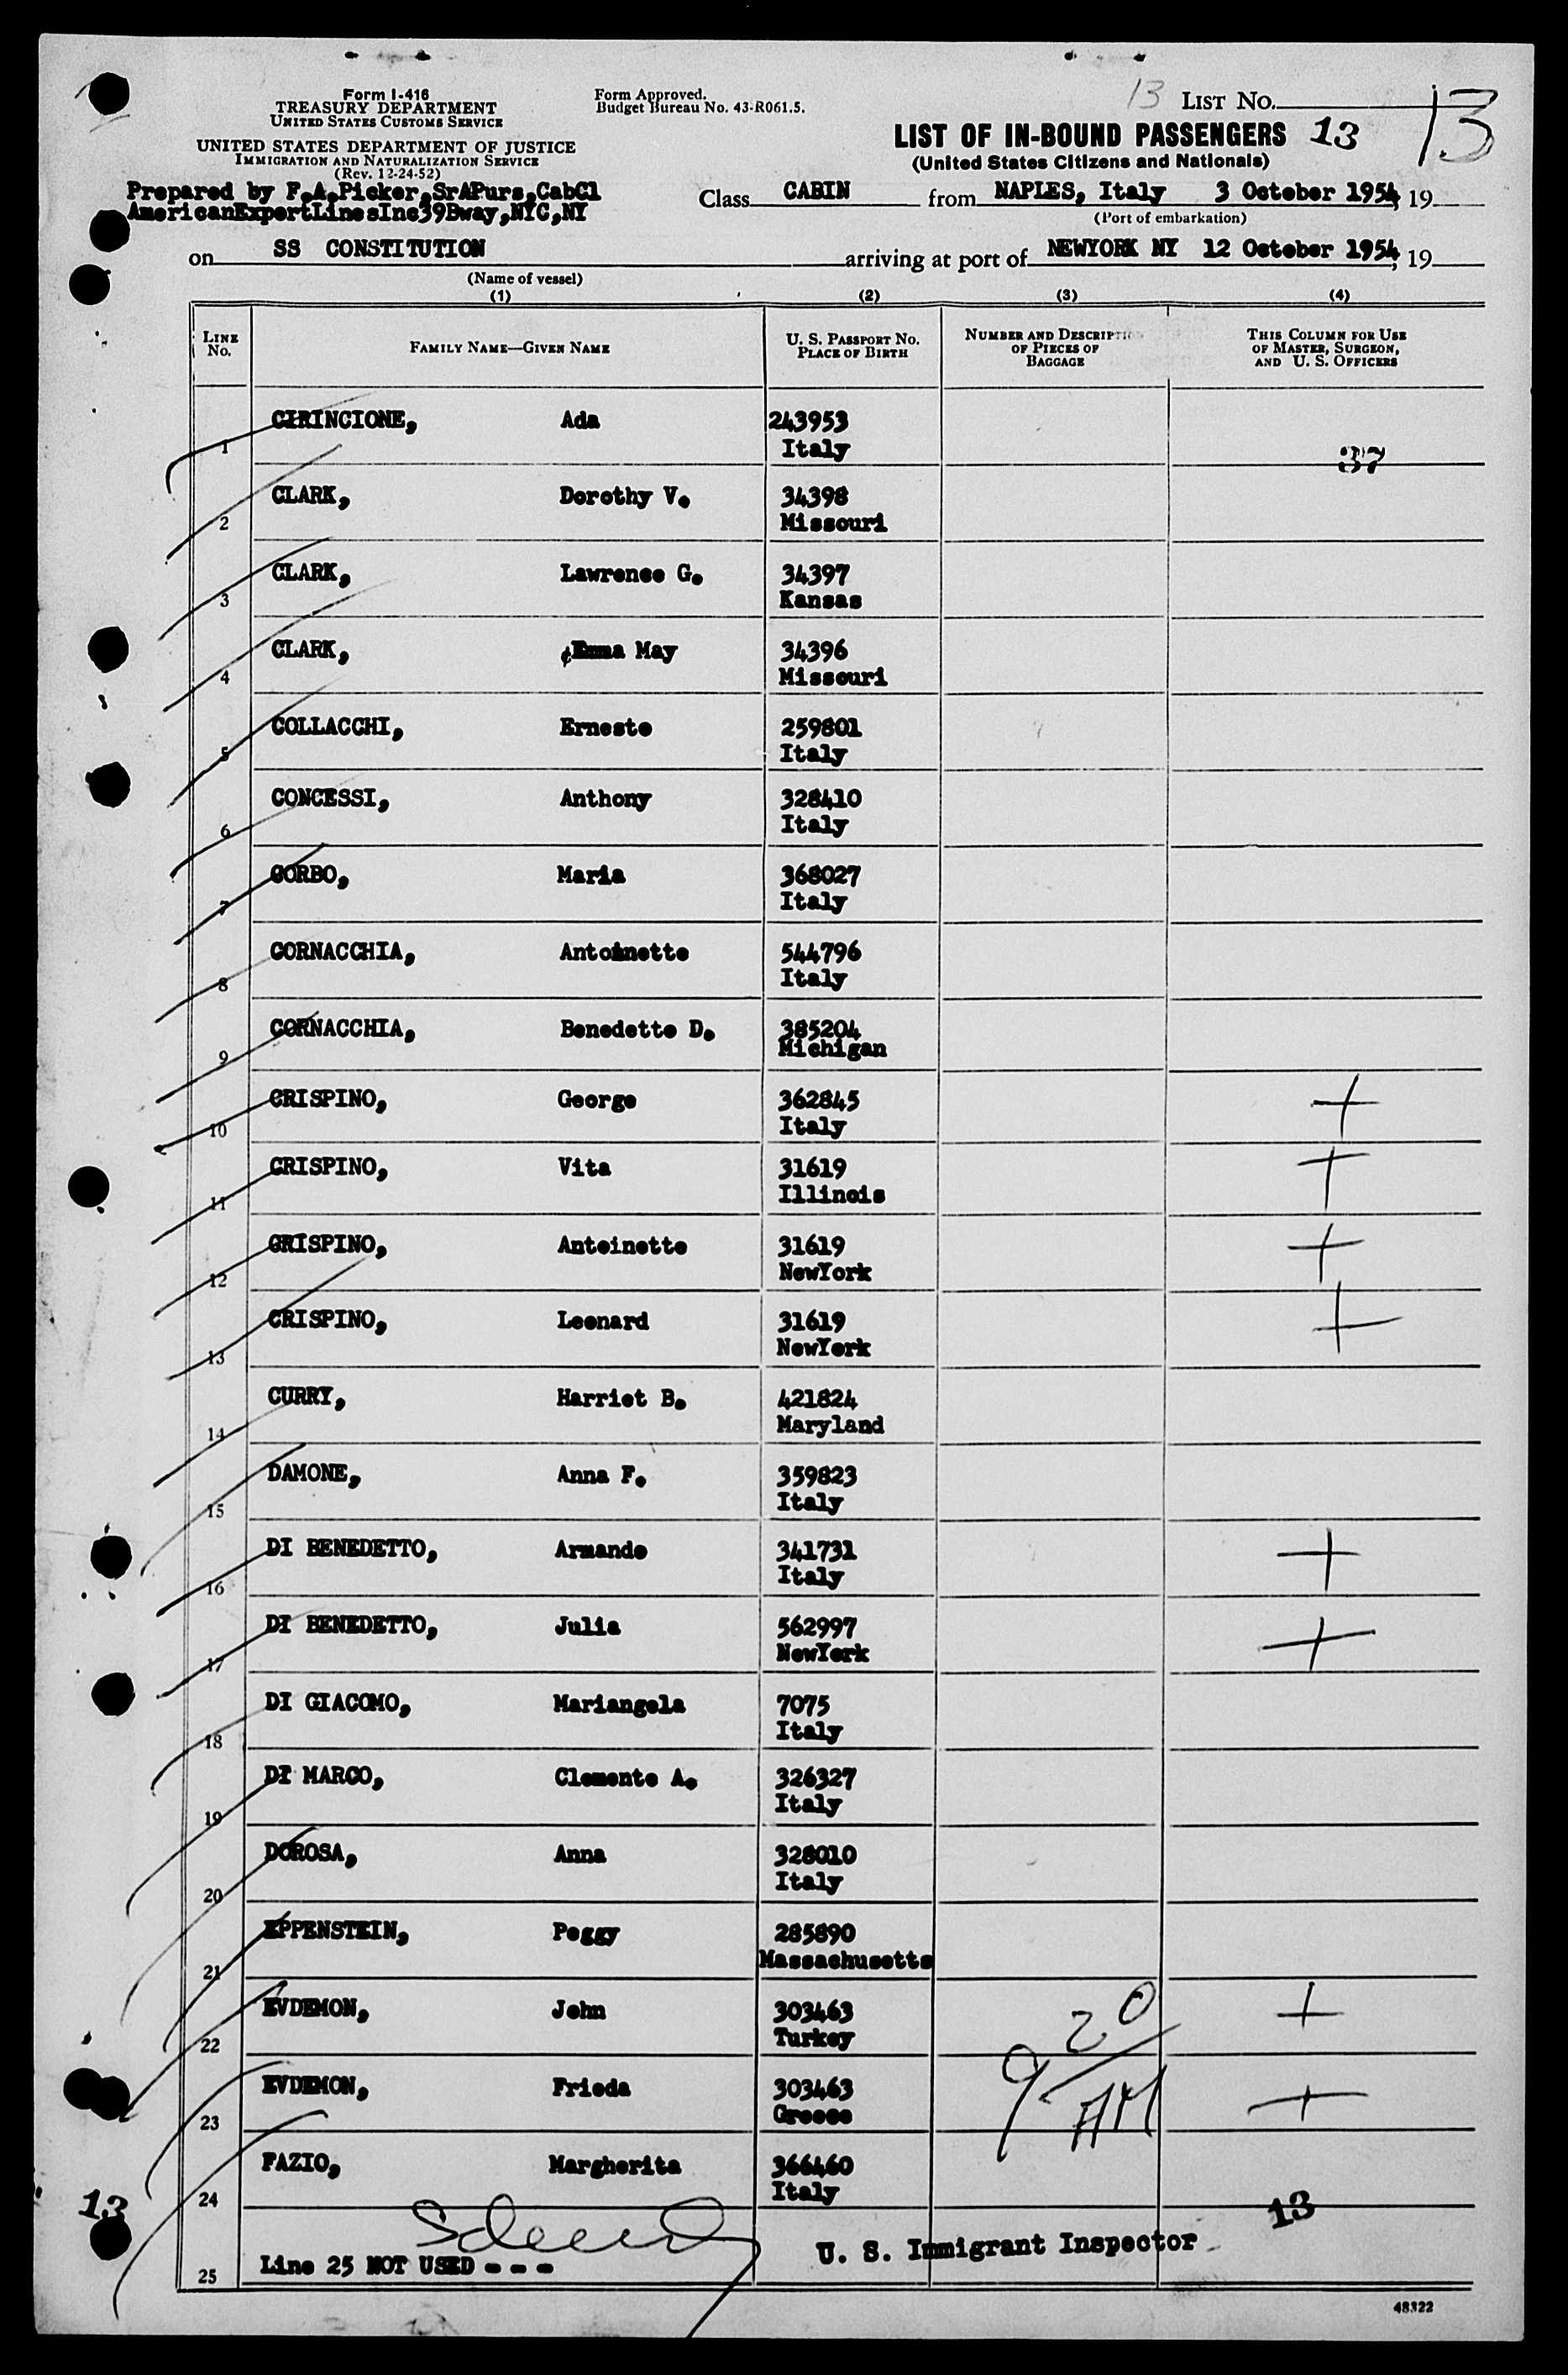 Form I-416
TREASURY DEPARTMENT
UNITED STATES CUSTOMS SERVICE
UNITED STATES DEPARTMENT OF JUSTICE
IMMIGRATION AND NATURALIZATION SERVICE
(Rev. 12-24-52)
Form Approved.
Budget Bureau No. 43-R061.5.
13 LIST No. 13
LIST OF IN-BOUND PASSENGERS 13
(United States Citizens and Nationals)
Prepared by F.A.Picker,SrAPurs,CabCl
AmericanExportLinesInc39Bway,NYC,NY
Class CABIN from NAPLES, Italy 3 October 1954, 19
(Port of embarkation)
on SS CONSTITUTION arriving at port of NEWYORK NY 12 October 1954, 19
(Name of vessel)
(1) (2) (3) (4)
LINE No. FAMILY NAME—GIVEN NAME U. S. PASSPORT NO. PLACE OF BIRTH NUMBER AND DESCRIPTION OF PIECES OF BAGGAGE THIS COLUMN FOR USE OF MASTER, SURGEON, AND U. S. OFFICERS
1 CIRINCIONE, Ada 243953
Italy
37
2 CLARK, Dorothy V. 34398
Missouri
3 CLARK, Lawrence G. 34397
Kansas
4 CLARK, Emma May 34396
Missouri
5 COLLACCHI, Ernesto 259801
Italy
6 CONCESSI, Anthony 328410
Italy
7 CORBO, Maria 368027
Italy
8 CORNACCHIA, Antoinette 544796
Italy
9 CORNACCHIA, Benedetto D. 385204
Michigan
10 CRISPINO, George 362845 +
Italy
11 CRISPINO, Vita 31619 +
Illinois
12 CRISPINO, Antoinette 31619 +
NewYork
13 CRISPINO, Leonard 31619 +
NewYork
14 CURRY, Harriet B. 421824
Maryland
15 DAMONE, Anna F. 359823
Italy
16 DI BENEDETTO, Armando 341731 +
Italy
17 DI BENEDETTO, Julia 562997 +
NewYork
18 DI GIACOMO, Mariangela 7075
Italy
19 DI MARCO, Clemente A. 326327
Italy
20 DOROSA, Anna 328010
Italy
21 EPPENSTEIN, Peggy 285890
Massachusetts
22 EVDEMON, John 303463 +
Turkey
9 20 AM
23 EVDEMON, Frieda 303463 +
Greece
24 FAZIO, Margherita 366460
Italy
13
13
U. S. Immigrant Inspector
25 Line 25 NOT USED - - -
48322